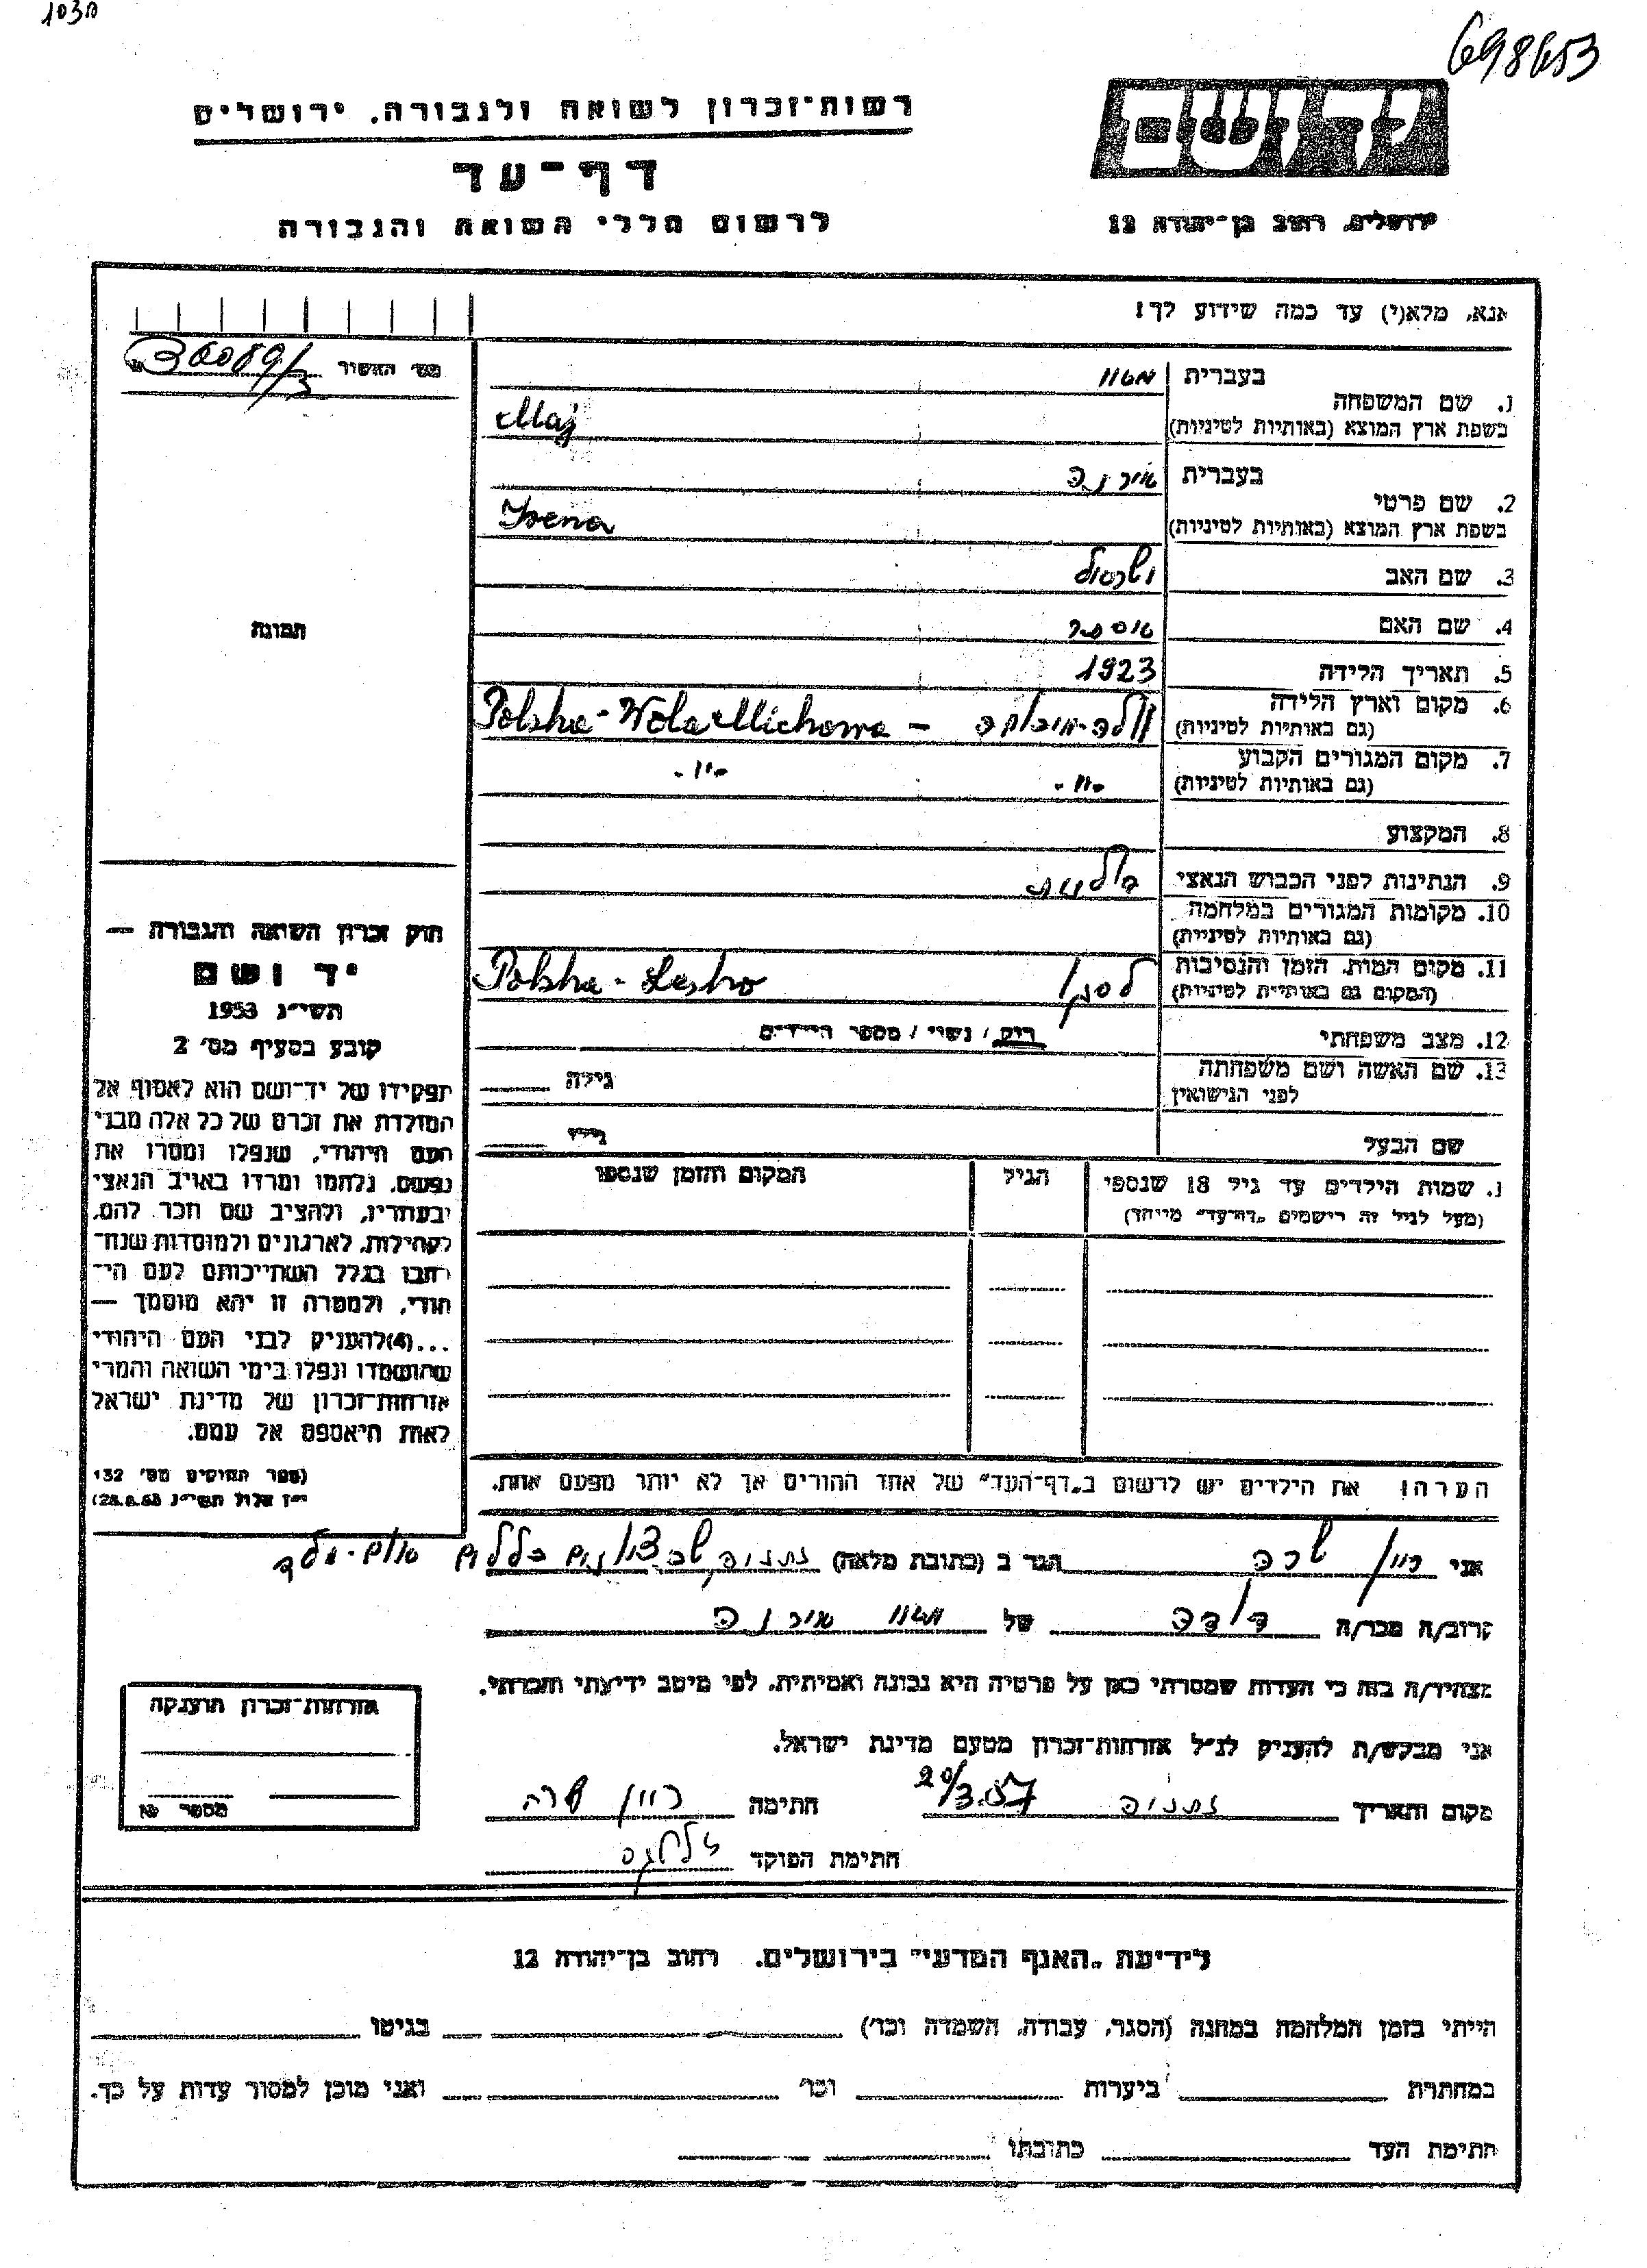 698653
רשות־זכרון לשואה ולגבורה, ירושלים
דף־עד
לרשום חללי השואה והגבורה
ידושם
ירושלים, רחוב בן־יהודה 12
אנא, מלא(י) עד כמה שידוע לך!
מס׳ האשור 36089/3
1. שם המשפחה
בעברית
בשפת ארץ המוצא (באותיות לטיניות) Maj
2. שם פרטי
בעברית אירנה
בשפת ארץ המוצא (באותיות לטיניות) Irena
3. שם האב
4. שם האם
5. תאריך הלידה 1923
6. מקום וארץ הלידה
(גם באותיות לטיניות) Polska - Wola Michowa -
7. מקום המגורים הקבוע
(גם באותיות לטיניות) -"- -"-
8. המקצוע
9. הנתינות לפני הכבוש הנאצי
10. מקומות המגורים במלחמה
(גם באותיות לטיניות)
11. מקום המות, הזמן והנסיבות
(המקום גם באותיות לטיניות) לסקו Polska - Lesko
12. מצב משפחתי רוק / נשוי / מספר הילדים
13. שם האשה ושם משפחתה
לפני הנישואין גילה
שם הבעל גילו
שמות הילדים עד גיל 18 שנספו
(מעל לגיל זה רישמים „דף־עד״ מיוחד)
הגיל
המקום והזמן שנספו
הערה! את הילדים יש לרשום ב„דף־העד״ של אחד ההורים אך לא יותר מפעם אחת.
תמונה
חוק זכרון השואה והגבורה —
יד ושם
תשי״ג 1953
קובע בסעיף מס׳ 2
תפקידו של יד־ושם הוא לאסוף אל
המולדת את זכרם של כל אלה מבני
העם היהודי, שנפלו ומסרו את
נפשם, נלחמו ומרדו באויב הנאצי
ובעוזריו, ולהציב שם וזכר להם,
לקהילות, לארגונים ולמוסדות שנח־
רבו בגלל השתייכותם לעם הי־
הודי, ולמטרה זו יהא מוסמך —
...(4)להעניק לבני העם היהודי
שהושמדו ונפלו בימי השואה והמרי
אזרחות־זכרון של מדינת ישראל
לאות היאספם אל עמם.
(ספר החוקים מס׳ 132
י״ז אלול תשי״ג 28.8.53)
אני שרה הגר ב (כתובת מלאה) נתניה
קרוב/ה מכר/ה דודה של אירנה
מצהיר/ה בזה כי העדות שמסרתי כאן על פרטיה היא נכונה ואמיתית, לפי מיטב ידיעתי והכרתי.
אני מבקש/ת להעניק לנ״ל אזרחות־זכרון מטעם מדינת ישראל.
מקום ותאריך נתניה 20/3.57 חתימה שרה
חתימת הפוקד
אזרחות־זכרון הוענקה
מספר
לידיעת „האגף המדעי״ בירושלים, רחוב בן־יהודה 12
הייתי בזמן המלחמה במחנה (הסגר, עבודה, השמדה וכו׳) בגיטו
במחתרת ביערות וכו׳ ואני מוכן למסור עדות על כך.
חתימת העד כתובתו